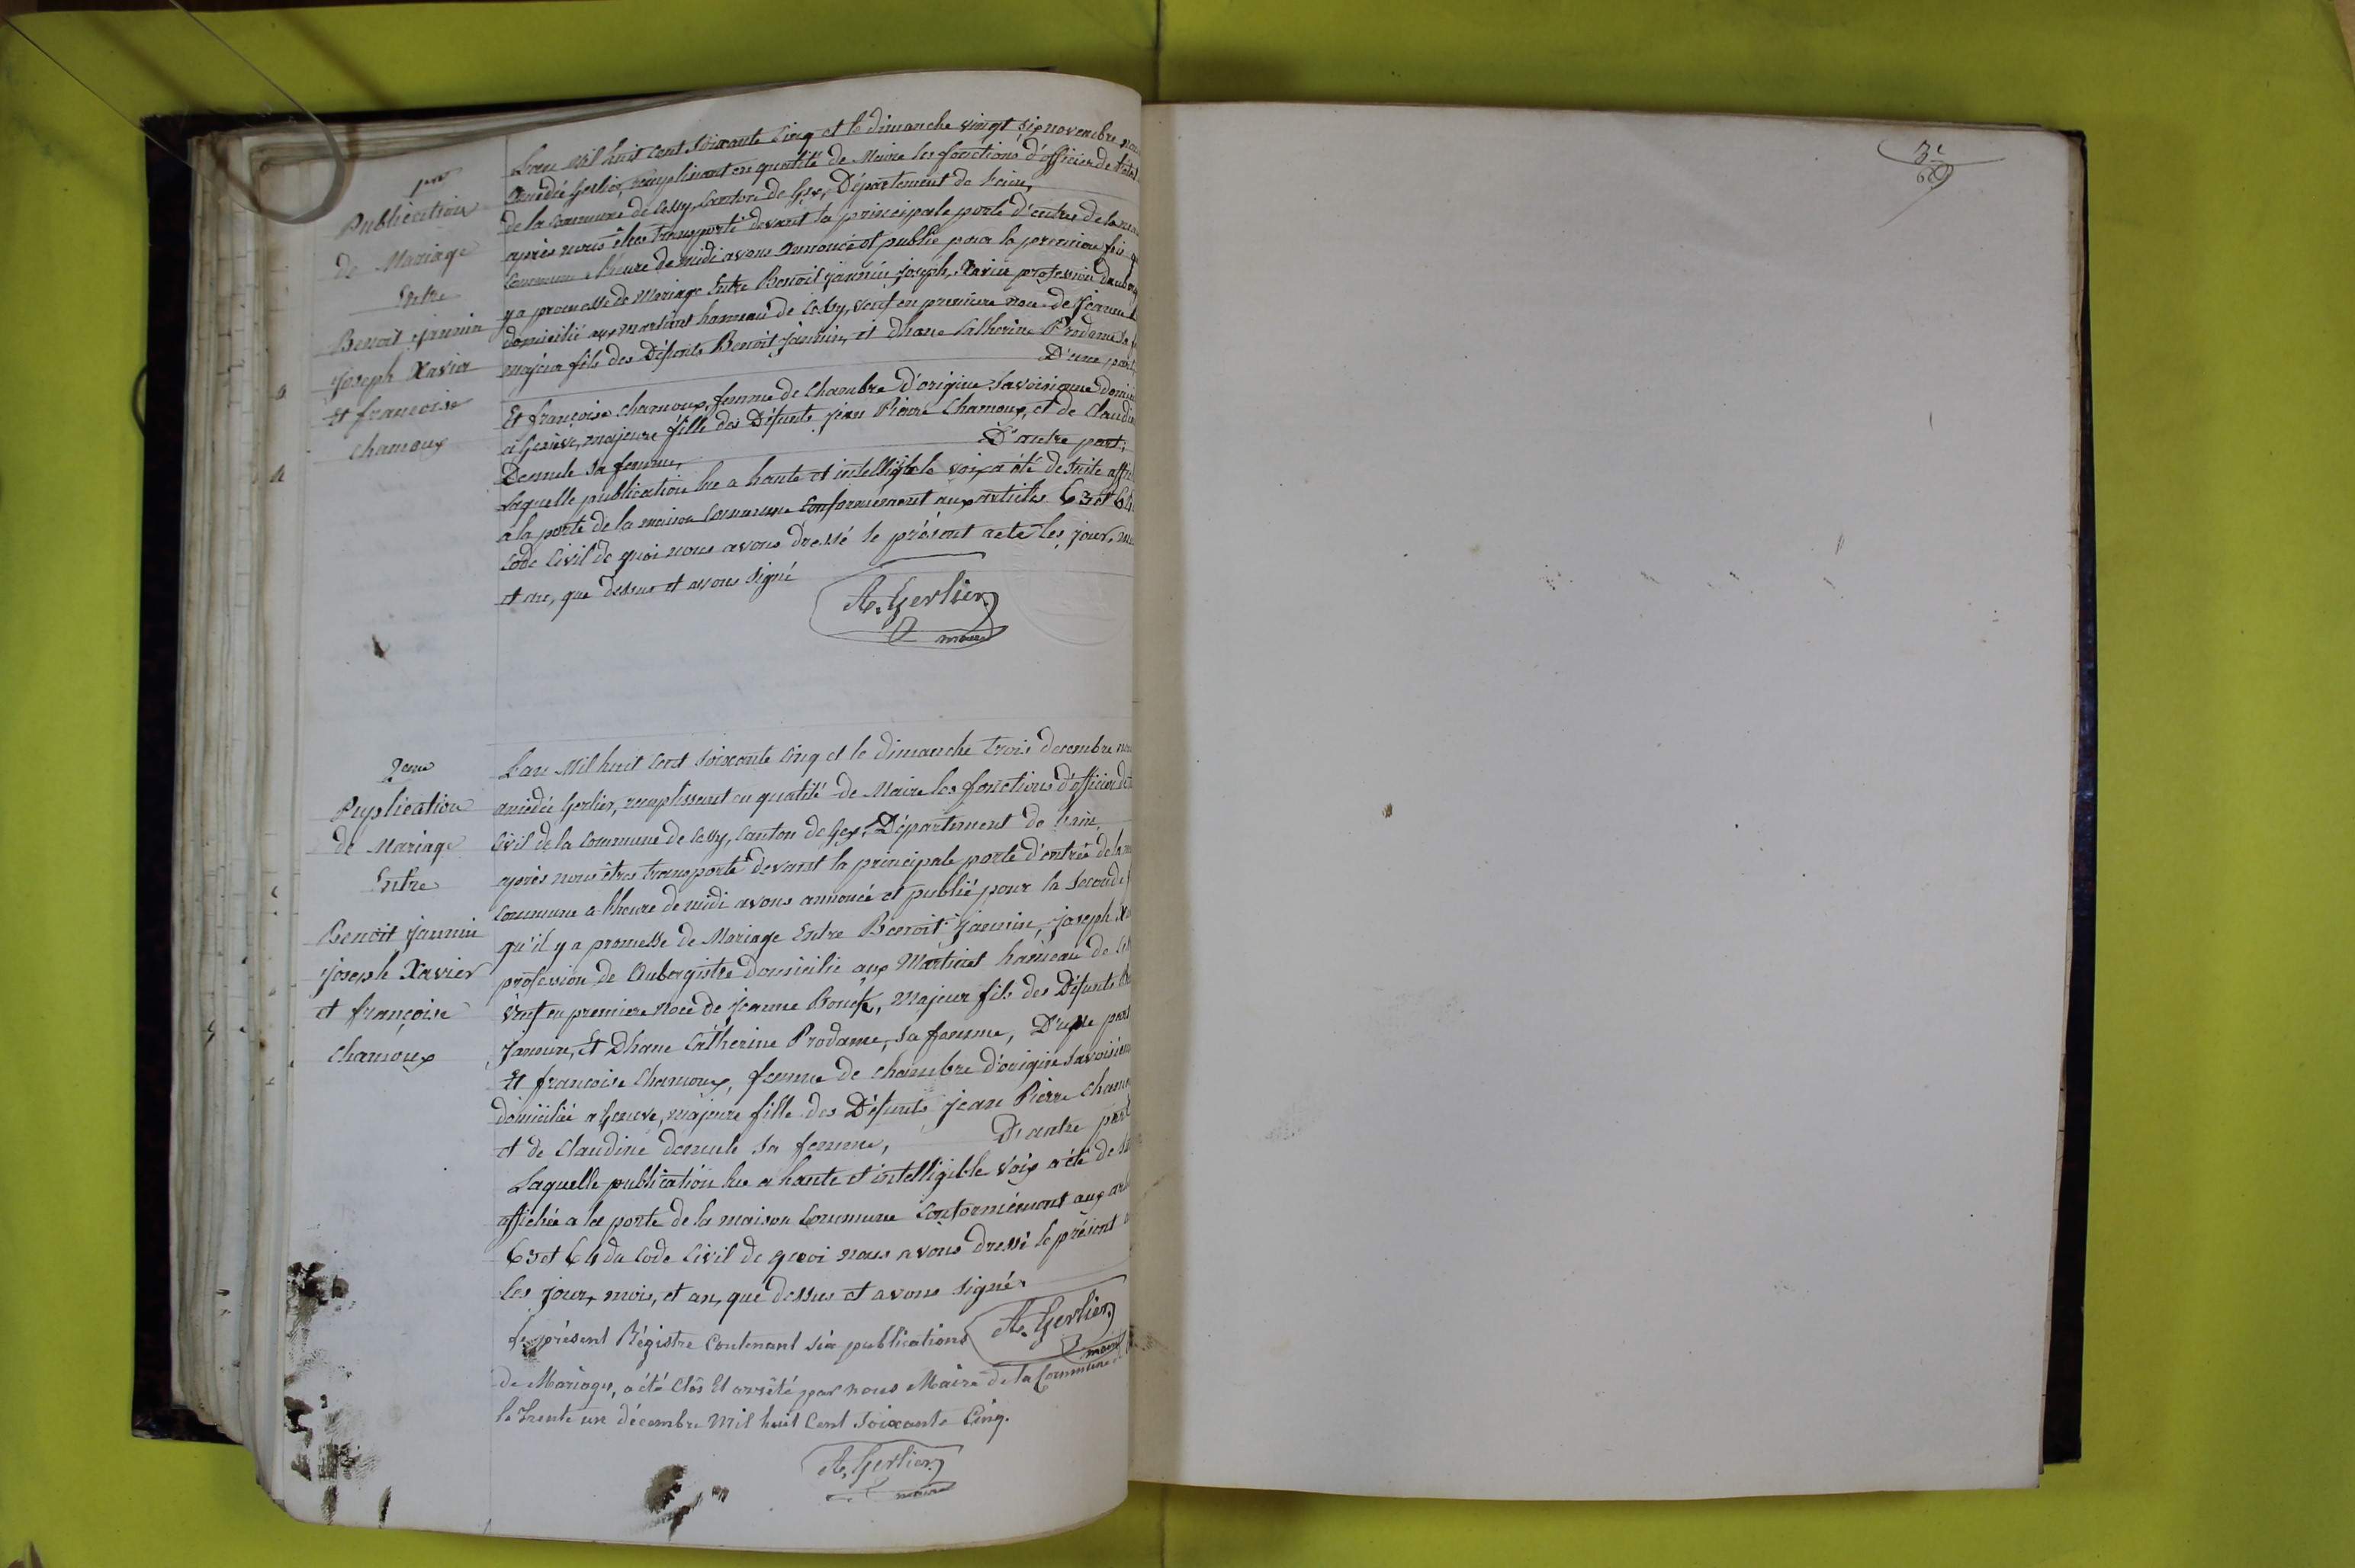 1ère
Publication
de Mariage
Entre
Benoit Jannin
Joseph Xavier
et françoise
chamoux
L'an Mil huit Cent Soixante Cinq et le dimanche vingt six novembre nous
Amédée Gerlier, remplissant en qualité de Maire les fonctions d'officier de l'état
de la Commune de Cessy, Canton de Gex, Département de l'ain,
après nous êtres transporté devant la principale porte d'entrée de la
Commune a l'heure de midi avons annoncé et publié pour la première fois
y a promesse de Mariage Entre Benoit Jannin, Joseph, Xavier profession
domicilié aux martinet hameau de Cessy, veuf en premiere noce de Jeanne
majeur fils des Défunts Benoit Jannin, et Dhane Catherine Prodame, Sa
D'une part,
Et françoise Chamoux, femme de Chambre d'origine Savoisienne
à Genève, majeure fille des Défunts Jean Pierre Chamoux, et de
Demule Sa femme, D'autre part,
Laquelle publication lue a haute et intelligible voix a été de suite
a la porte de la maison Commune Conformement aux articles 63 et 64
Code Civil de quoi nous avons dressé le présent acte les jour,
et an, que dessus et avons Signé
A. Gerlier
maire
2eme
Puplication
de Mariage
Entre
Benoit Jannin
Joseph Xavier
et françoise
Chamoux
L'an Mil huit Cent Soixante Cinq et le dimanche trois decembre
amédée Gerlier, remplissant en qualité de Maire les fonctions d'officier
Civil de la Commune de Cessy, Canton de Gex, Département de l'ain,
après nous êtres transporté devant la principale porte d'entrée de la
Commune a l'heure de midi avons annoncé et publié pour la Seconde
qu'il y a promesse de Mariage Entre Benoit Jannin, Joseph
profession de Aubergiste domicilié aux Martinet hameau de
veuf en premiere noce de Jeanne Bouck, Majeur fils des Défunts
Jannin, Et Dhane Catherine Prodame, Sa femme, D'une part
Et francoise Chamoux, femme de chambre d'origine
domiciliée a Genève, majeure fille des Défunts Jean Pierre
et de Claudine demule Sa femme, D'autre part
Laquelle publication lue a haute et intelligible voix a été de
affichée a la porte de la maison Commune Conformément aux
63 et 64 du Code Civil de quoi nous avons dressé le présent
les jour, mois, et an, que dessus et avons Signé.
A. Gerlier
maire
Le présent Régistre Contenant six publications
de Mariage, a été Clos Et arrêté par nous Maire de la Commune
le Trente un décembre Mil huit Cent Soixante Cinq.
A. Gerlier
maire
3e
69